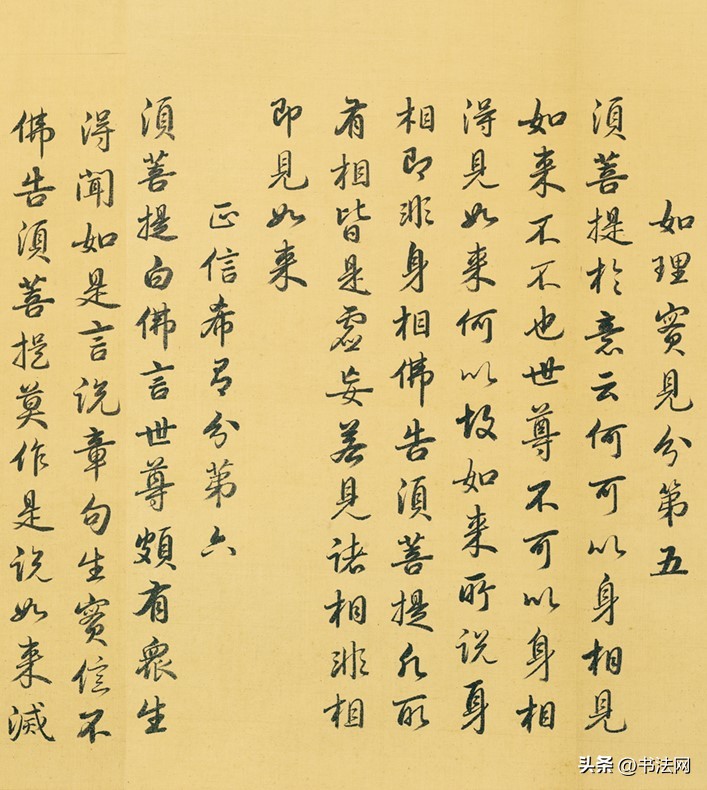 如理實見分第五
須菩提於意云何可以身相見
如來不不也世尊不可以身相
得見如來何以故如來所說身
相即非身相佛告須菩提凡所
有相皆是虛妄若見諸相非相
即見如來
正信希有分第六
須菩提白佛言世尊頗有眾生
得聞如是言說章句生實信不
佛告須菩提莫作是說如來滅
头条 @书法网